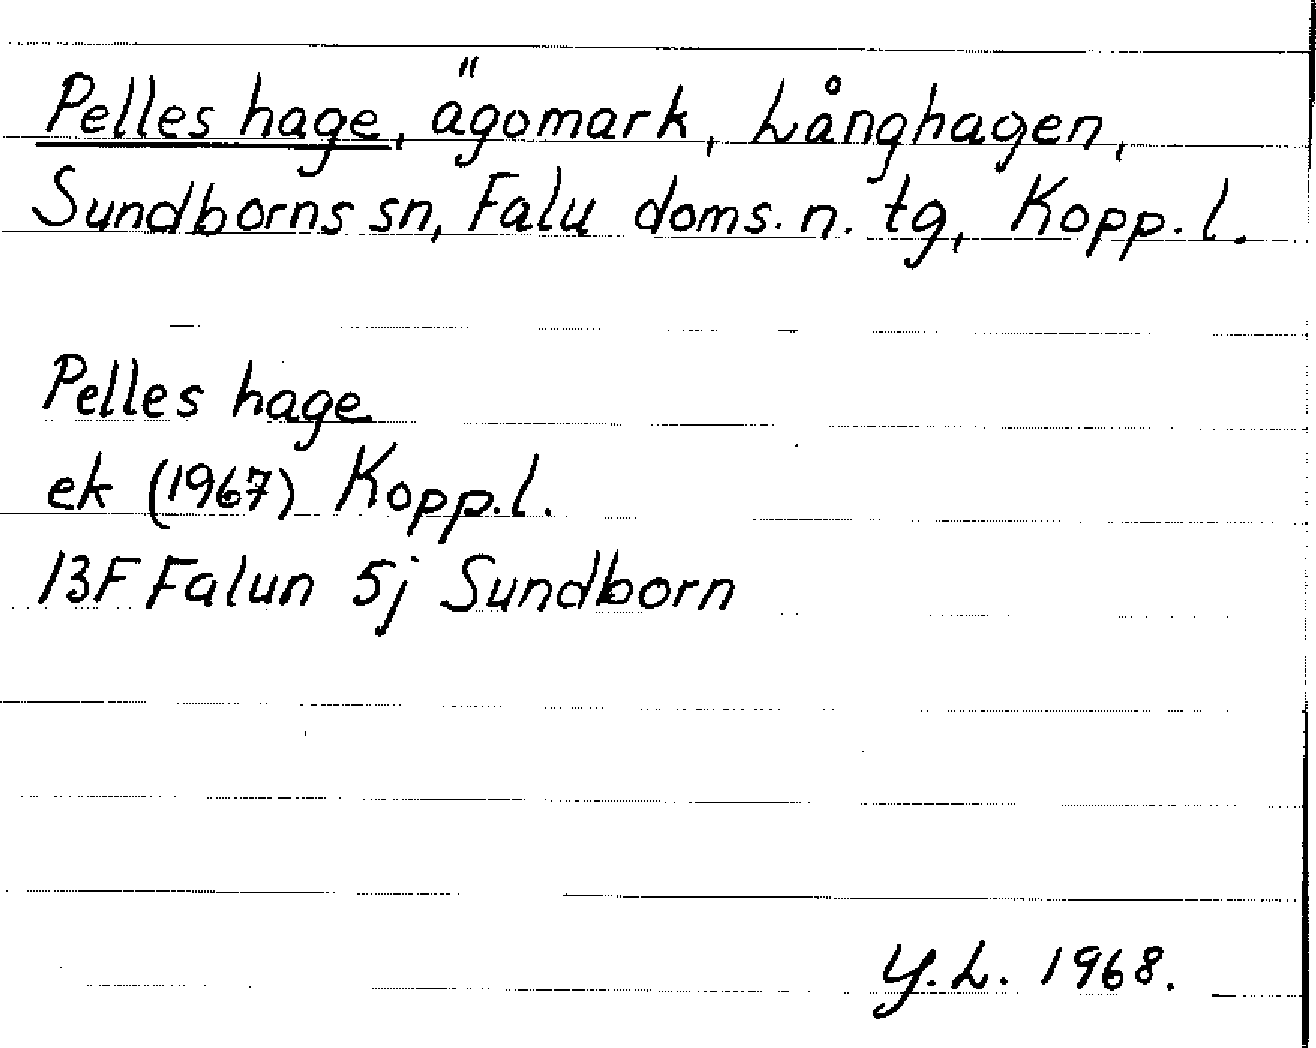 Pelles hage, ägomark, Långhagen,
Sundborns sn, Falu doms. n. tg, Kopp. l.
Pelles hage
ek (1967) Kopp. l.
13F Falun 5j Sundborn
Y. L. 1968.